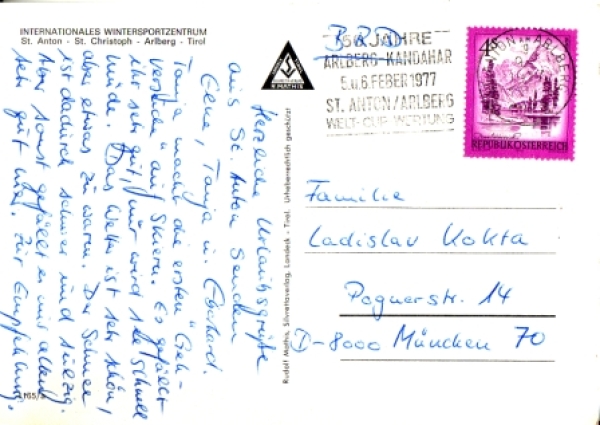 INTERNATIONALES WINTERSPORTZENTRUM
St. Anton - St. Christoph - Arlberg - Tirol
Herzliche Urlaubsgrüße
aus St. Anton senden
Elene, Tanja u. Eberhard.
Tanja macht die ersten "Geh-
versuche" auf Skiern. Es gefällt
ihr sehr gut, nur wird sie schnell
müde. Das Wetter ist sehr schön,
aber etwas zu warm. Der Schnee
ist dadurch schwer und sulzig.
Aber sonst gefällt es uns allen
sehr gut hier. Zur Empfehlung.
1165/
R. MATHIS
Rudolf Mathis, Silvrettaverlag, Landeck - Tirol. Urheberrechtlich geschützt
BRD
50 JAHRE
ARLBERG-KANDAHAR
5.u.6.FEBER 1977
ST. ANTON/ARLBERG
WELT-CUP-WERTUNG
ANTON AM ARLBERG
4S
REPUBLIK ÖSTERREICH
Familie
Ladislav Kokta
Pognerstr. 14
D-8000 München 70